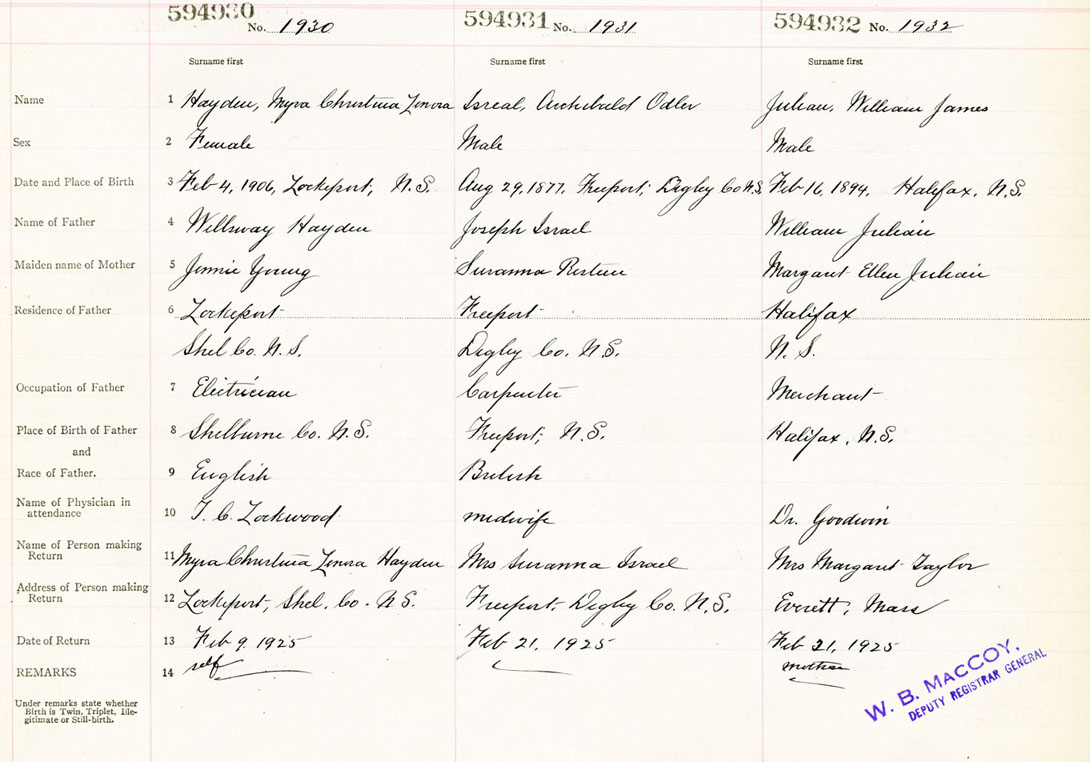 594930 No. 1930 594931 No. 1931 594932 No. 1932
Surname first Surname first Surname first
Name 1 Hayden, Myra Christina Zenora Isreal, Archibald Odler Julian, William James
Sex 2 Female Male Male
Date and Place of Birth 3 Feb 4, 1906, Lockeport, N.S. Aug 29, 1877, Freeport, Digby Co N.S. Feb 16, 1894, Halifax, N.S.
Name of Father 4 Hayden Joseph Israel William Julian
Maiden name of Mother 5 Jennie Young Susanna Margaret Ellen Julian
Residence of Father 6 Lockeport Freeport Halifax
Shel Co. N.S. Digby Co. N.S. N.S.
Occupation of Father 7 Electrician Carpenter Merchant
Place of Birth of Father 8 Shelburne Co. N.S. Freeport, N.S. Halifax, N.S.
and
Race of Father. 9 English British
Name of Physician in
attendance 10 Lockwood midwife Dr. Goodwin
Name of Person making
Return 11 Myra Christina Zenora Hayden Mrs Susanna Israel Mrs Margaret Taylor
Address of Person making
Return 12 Lockeport, Shel. Co. N.S. Freeport, Digby Co. N.S. Everett, Mass
Date of Return 13 Feb 9, 1925 Feb 21, 1925 Feb 21, 1925
REMARKS 14 self mother
Under remarks state whether
Birth is Twin, Triplet, Ille-
gitimate or Still-birth.
W. B. MACCOY,
DEPUTY REGISTRAR GENERAL